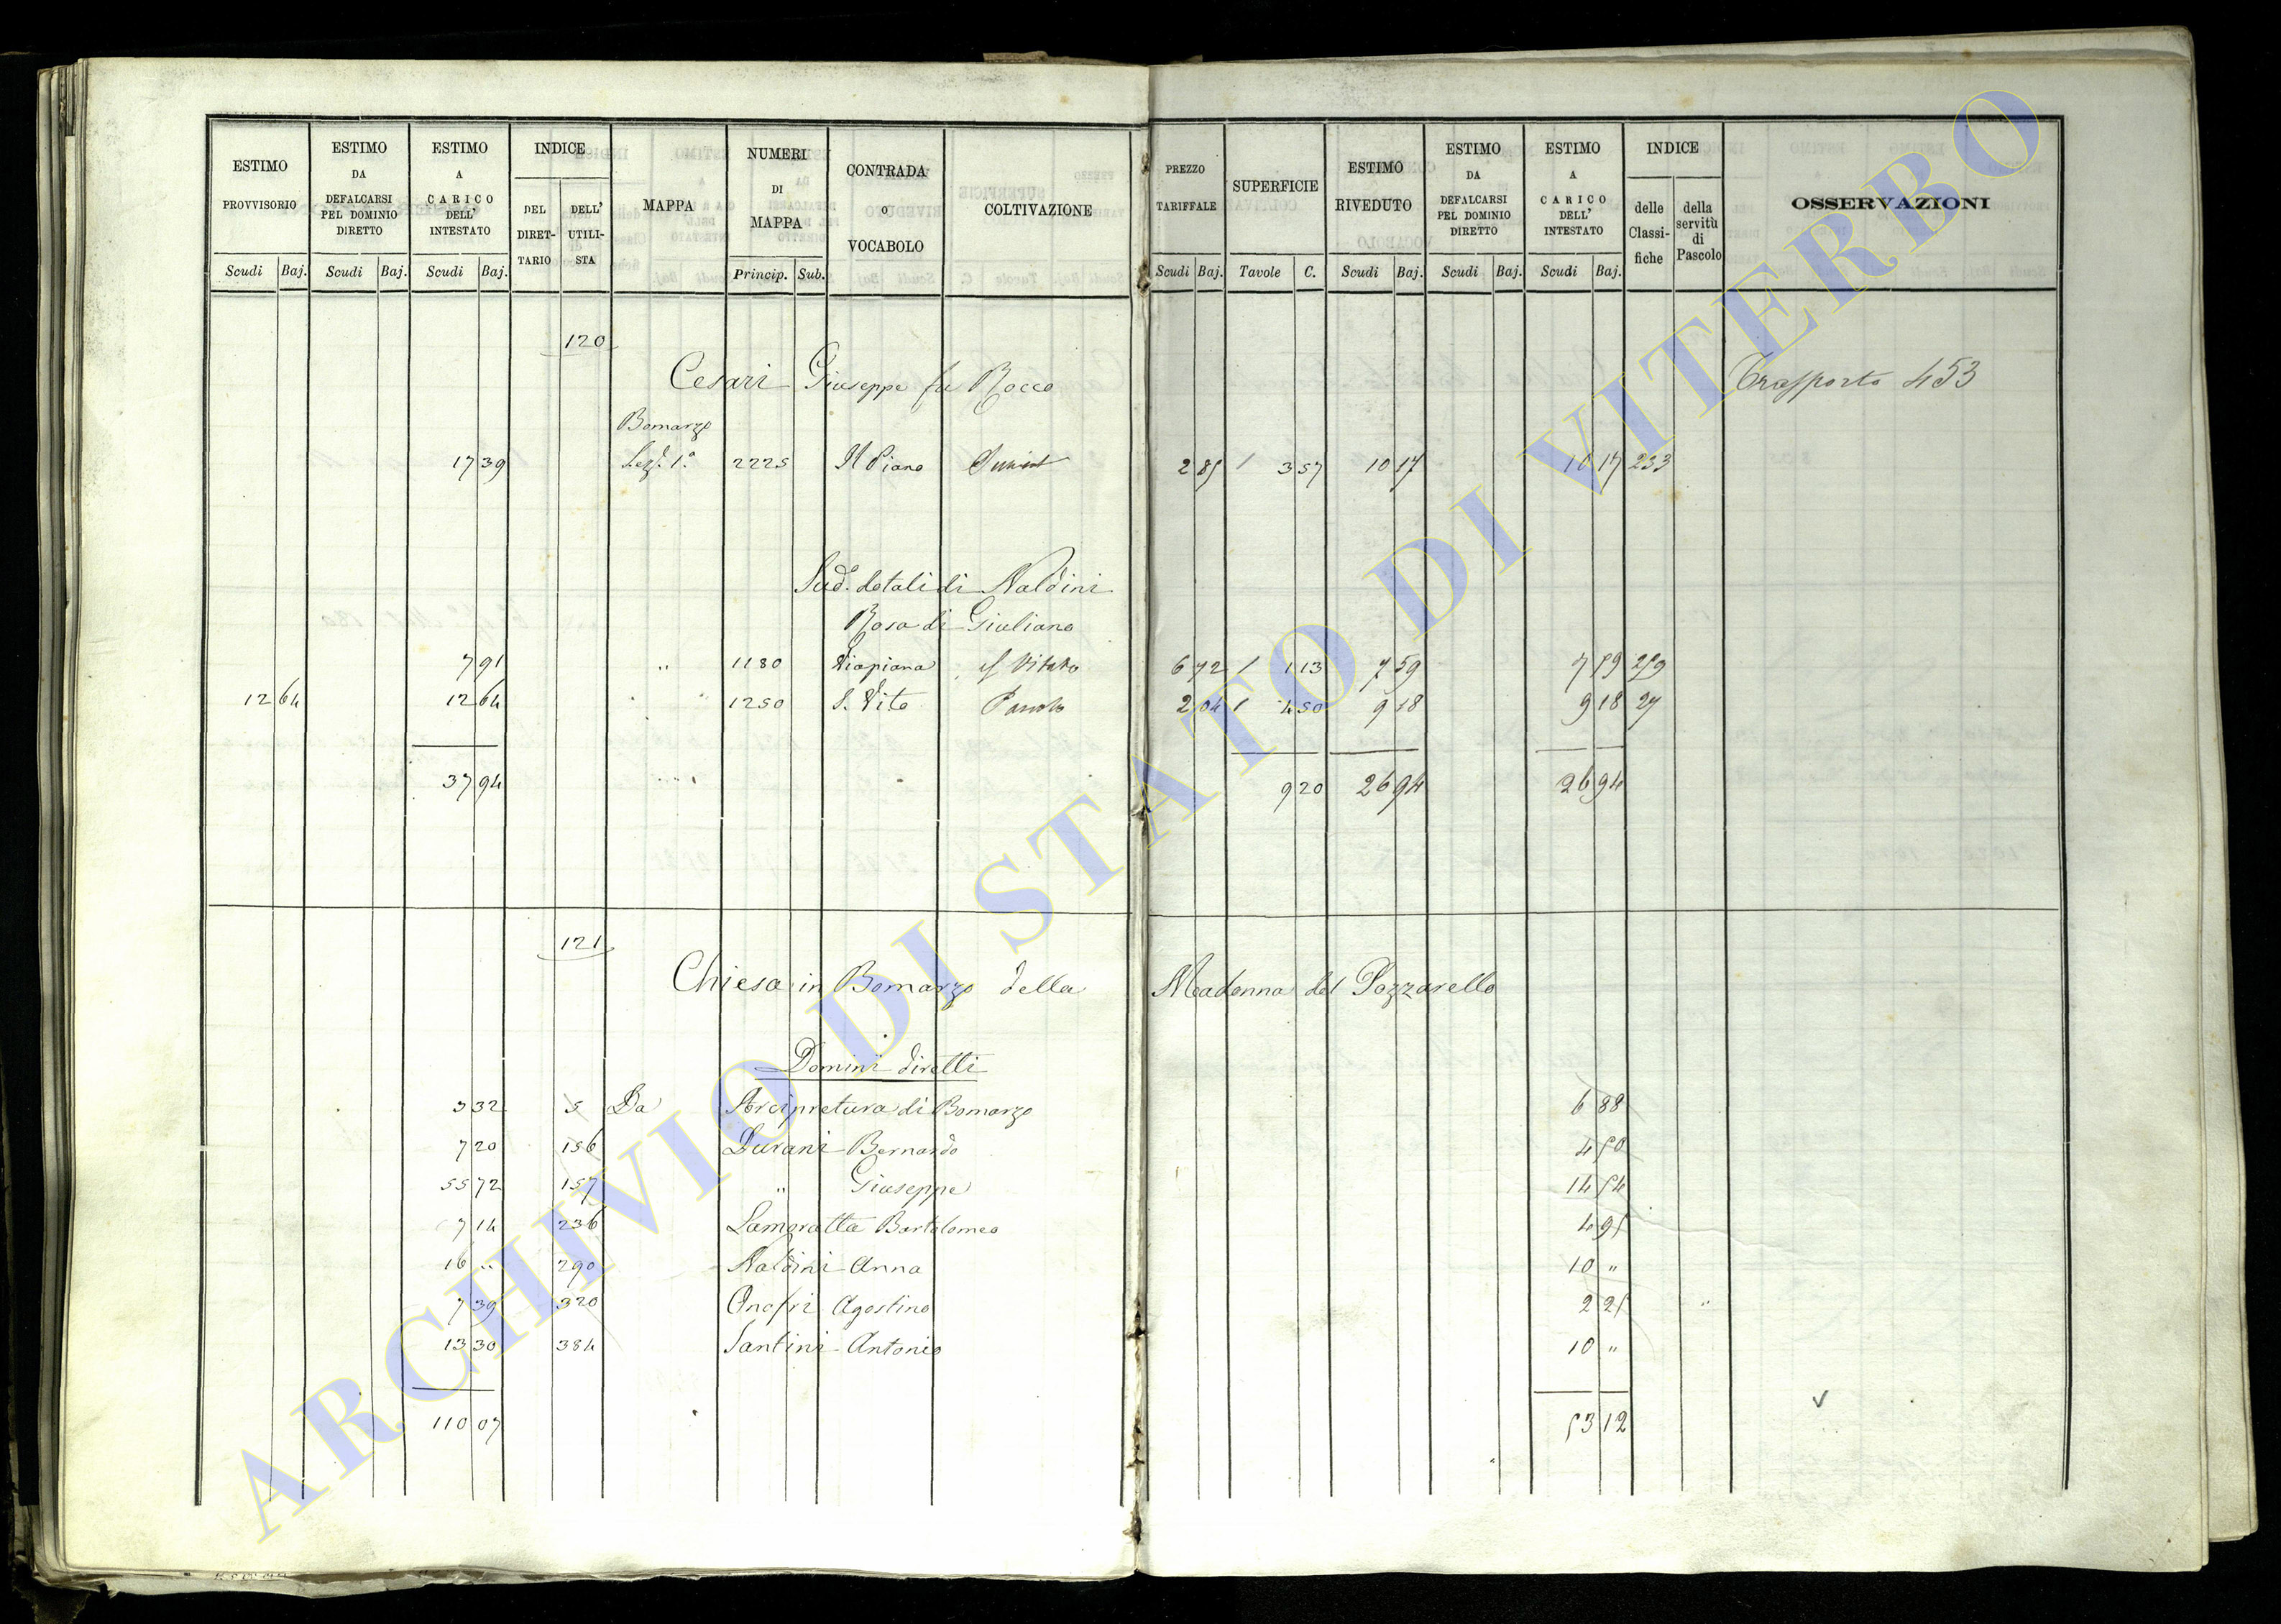 ESTIMO PROVVISORIO
ESTIMO DA DEFALCARSI PEL DOMINIO DIRETTO
ESTIMO A CARICO DELL' INTESTATO
INDICE
DEL DIRET-TARIO
DELL' UTILI-STA
MAPPA
NUMERI DI MAPPA
CONTRADA o VOCABOLO
COLTIVAZIONE
PREZZO TARIFFALE
SUPERFICIE
ESTIMO RIVEDUTO
ESTIMO DA DEFALCARSI PEL DOMINIO DIRETTO
ESTIMO A CARICO DELL' INTESTATO
INDICE
delle Classi-fiche
della servitù di Pascolo
OSSERVAZIONI
Scudi Baj. Scudi Baj. Scudi Baj. Princip. Sub. Scudi Baj. Tavole C. Scudi Baj. Scudi Baj. Scudi Baj.
120
Cesari Giuseppe fu Rocco Trasporto 453
Bomarzo
17 39 Sez. 1a 2225 Il Piano 2 85 / 3 57 10 17 10 17 233
Sud. dotali di Naldini
Rosa di Giuliano
7 91 " 1180 Viapiana Vitato 6 72 / 1 13 7 59 7 59 259
12 64 12 64 " " 1250 S. Vito Pascolo 2 04 / 4 50 9 18 9 18 27
37 94 9 20 26 94 26 94
121
Chiesa in Bomarzo della Madonna del Pozzarello
Domini diretti
3 32 5 Da Arcipretura di Bomarzo 6 88
7 20 156 Durani Bernardo 4 50
55 72 157 " Giuseppe 14 54
7 14 236 Lamoratta Bartolomeo 4 95
16 " 290 Naldini Anna 10 "
7 39 320 Onofri Agostino 2 25 "
13 30 384 Santini Antonio 10 "
110 07 53 12
ARCHIVIO DI STATO DI VITERBO